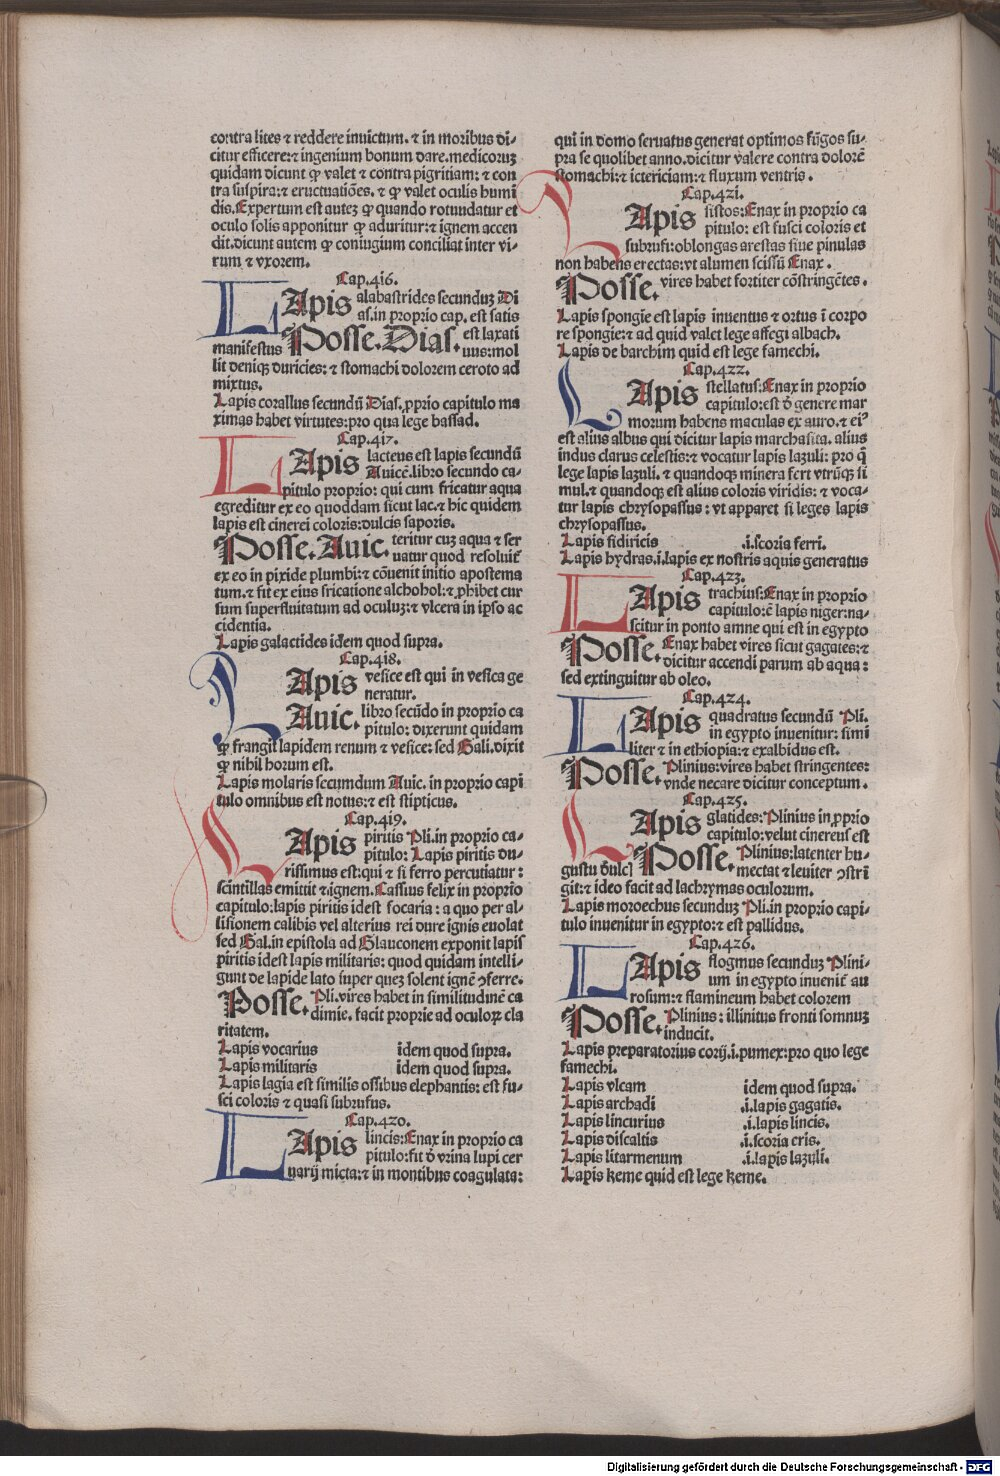 contra lites ⁊ reddere inuictum. ⁊ in moribus di-
citur efficere: ⁊ ingenium bonum dare. medicoruꝫ
quidam dicunt ꝙ valet ⁊ contra pigritiam: ⁊ con
tra suspiria: ⁊ eructuatiões. ⁊ ꝙ valet oculis humi
dis. Expertum est auteꝫ ꝙ quando rotundatur et
oculo solis apponitur ꝙ aduritur: ⁊ ignem accen
dit. dicunt autem ꝙ coniugium conciliat inter vi-
rum ⁊ vxorem.
Cap.416.
LApis alabastrides secunduꝫ Di
as. in proprio cap. est satis
manifestus Posse. Dias. est laxati
uus: mol
lit deniqꝫ duricies: ⁊ stomachi dolorem ceroto ad
mixtus.
Lapis corallus secundũ Dias. ꝓprio capitulo ma
ximas habet virtutes: pro qua lege bassad.
Cap.417.
LApis lacteus est lapis secundũ
Auicẽ. libro secundo ca-
pitulo proprio: qui cum fricatur aqua
egreditur ex eo quoddam sicut lac. ⁊ hic quidem
lapis est cinerei coloris: dulcis saporis.
Posse. Auic. teritur cuꝫ aqua ⁊ ser
uatur quod resoluit̃
ex eo in pixide plumbi: ⁊ cõuenit initio apostema
tum. ⁊ fit ex eius fricatione alchohol: ⁊ ꝓhibet cur
sum superfluitatum ad oculuꝫ: ⁊ vlcera in ipso ac
cidentia.
Lapis galactides idem quod supra.
Cap.418.
LApis vesice est qui in vesica ge
neratur.
Auic. libro secũdo in proprio ca
pitulo: dixerunt quidam
ꝙ frangit lapidem renum ⁊ vesice: sed Gali. dixit
ꝙ nihil horum est.
Lapis molaris secumdum Auic. in proprio capi
tulo omnibus est notus: ⁊ est stipticus.
Cap.419.
LApis piritis Pli. in proprio ca-
pitulo: Lapis piritis du-
rissimus est: qui ⁊ si ferro percutiatur:
scintillas emittit ⁊ ignem. Cassius felix in proprio
capitulo: lapis piritis idest focaria: a quo per al-
lisionem calibis vel alterius rei dure ignis euolat
sed Gal. in epistola ad Glauconem exponit lapis
piritis idest lapis militaris: quod quidam intelli-
gunt de lapide lato super quez solent ignẽ ꝯferre.
Posse. Pli. vires habet in similitudinẽ ca
dimie. facit proprie ad oculoꝝ cla
ritatem.
Lapis vocarius idem quod supra.
Lapis militaris idem quod supra.
Lapis lagia est similis ossibus elephantis: est fu-
sci coloris ⁊ quasi subrufus.
Cap.420.
LApis lincis: Enax in proprio ca
pitulo: fit ð vrina lupi cer
uarij micta: ⁊ in montibus coagulata:
qui in domo seruatus generat optimos fũgos su-
pra se quolibet anno. dicitur valere contra dolorẽ
stomachi: ⁊ ictericiam: ⁊ fluxum ventris.
Cap.421.
LApis sistos: Enax in proprio ca
pitulo: est fusci coloris et
subrufi: oblongas arestas siue pinulas
non habens erectas: vt alumen scissũ Enax.
Posse. vires habet fortiter cõstringẽtes.
Lapis spongie est lapis inuentus ⁊ ortus ĩ corpo
re spongie: ⁊ ad quid valet lege affegi albach.
Lapis de barchim quid est lege famechi.
Cap.422.
LApis stellatus: Enax in proprio
capitulo: est ð genere mar
morum habens maculas ex auro. ⁊ eiꝰ
est alius albus qui dicitur lapis marchasita. alius
indus clarus celestis: ⁊ vocatur lapis lazuli: pro q̃
lege lapis lazuli. ⁊ quandoqꝫ minera fert vtrũqꝫ si
mul. ⁊ quandoqꝫ est alius coloris viridis: ⁊ voca-
tur lapis chrysopassus: vt apparet si leges lapis
chrysopassus.
Lapis fidiricis .i. scoria ferri.
Lapis hydras. i. lapis ex nostris aquis generatus
Cap.423.
LApis trachius: Enax in proprio
capitulo: ẽ lapis niger: na-
scitur in ponto amne qui est in egypto
Posse. Enax habet vires sicut gagates: ⁊
dicitur accendi parum ab aqua:
sed extinguitur ab oleo.
Cap.424.
LApis quadratus secundũ Pli.
in egypto inuenitur: simi
liter ⁊ in ethiopia: ⁊ exalbidus est.
Posse. Plinius: vires habet stringentes:
vnde necare dicitur conceptum.
Cap.425.
LApis glatides: Plinius in ꝓprio
capitulo: velut cinereus est
gustu ðulci Posse. Plinius: latenter hu-
mectat ⁊ leuiter ꝯstrĩ
git: ⁊ ideo facit ad lachrymas oculorum.
Lapis moroechus secunduꝫ Pli. in proprio capi-
tulo inuenitur in egypto: ⁊ est pallidus.
Cap.426.
LApis flogmus secunduꝫ Plini-
um in egypto inuenit̃ au
rosum: ⁊ flamineum habet colorem
Posse. Plinius: illinitus fronti somnuꝫ
inducit.
Lapis preparatorius corij. i. pumex: pro quo lege
famechi.
Lapis vlcam idem quod supra.
Lapis archadi .i. lapis gagatis.
Lapis lincurius .i. lapis lincis.
Lapis discaltis .i. scoria eris.
Lapis litarmenum .i. lapis lazuli.
Lapis keme quid est lege keme.
Digitalisierung gefördert durch die Deutsche Forschungsgemeinschaft - DFG